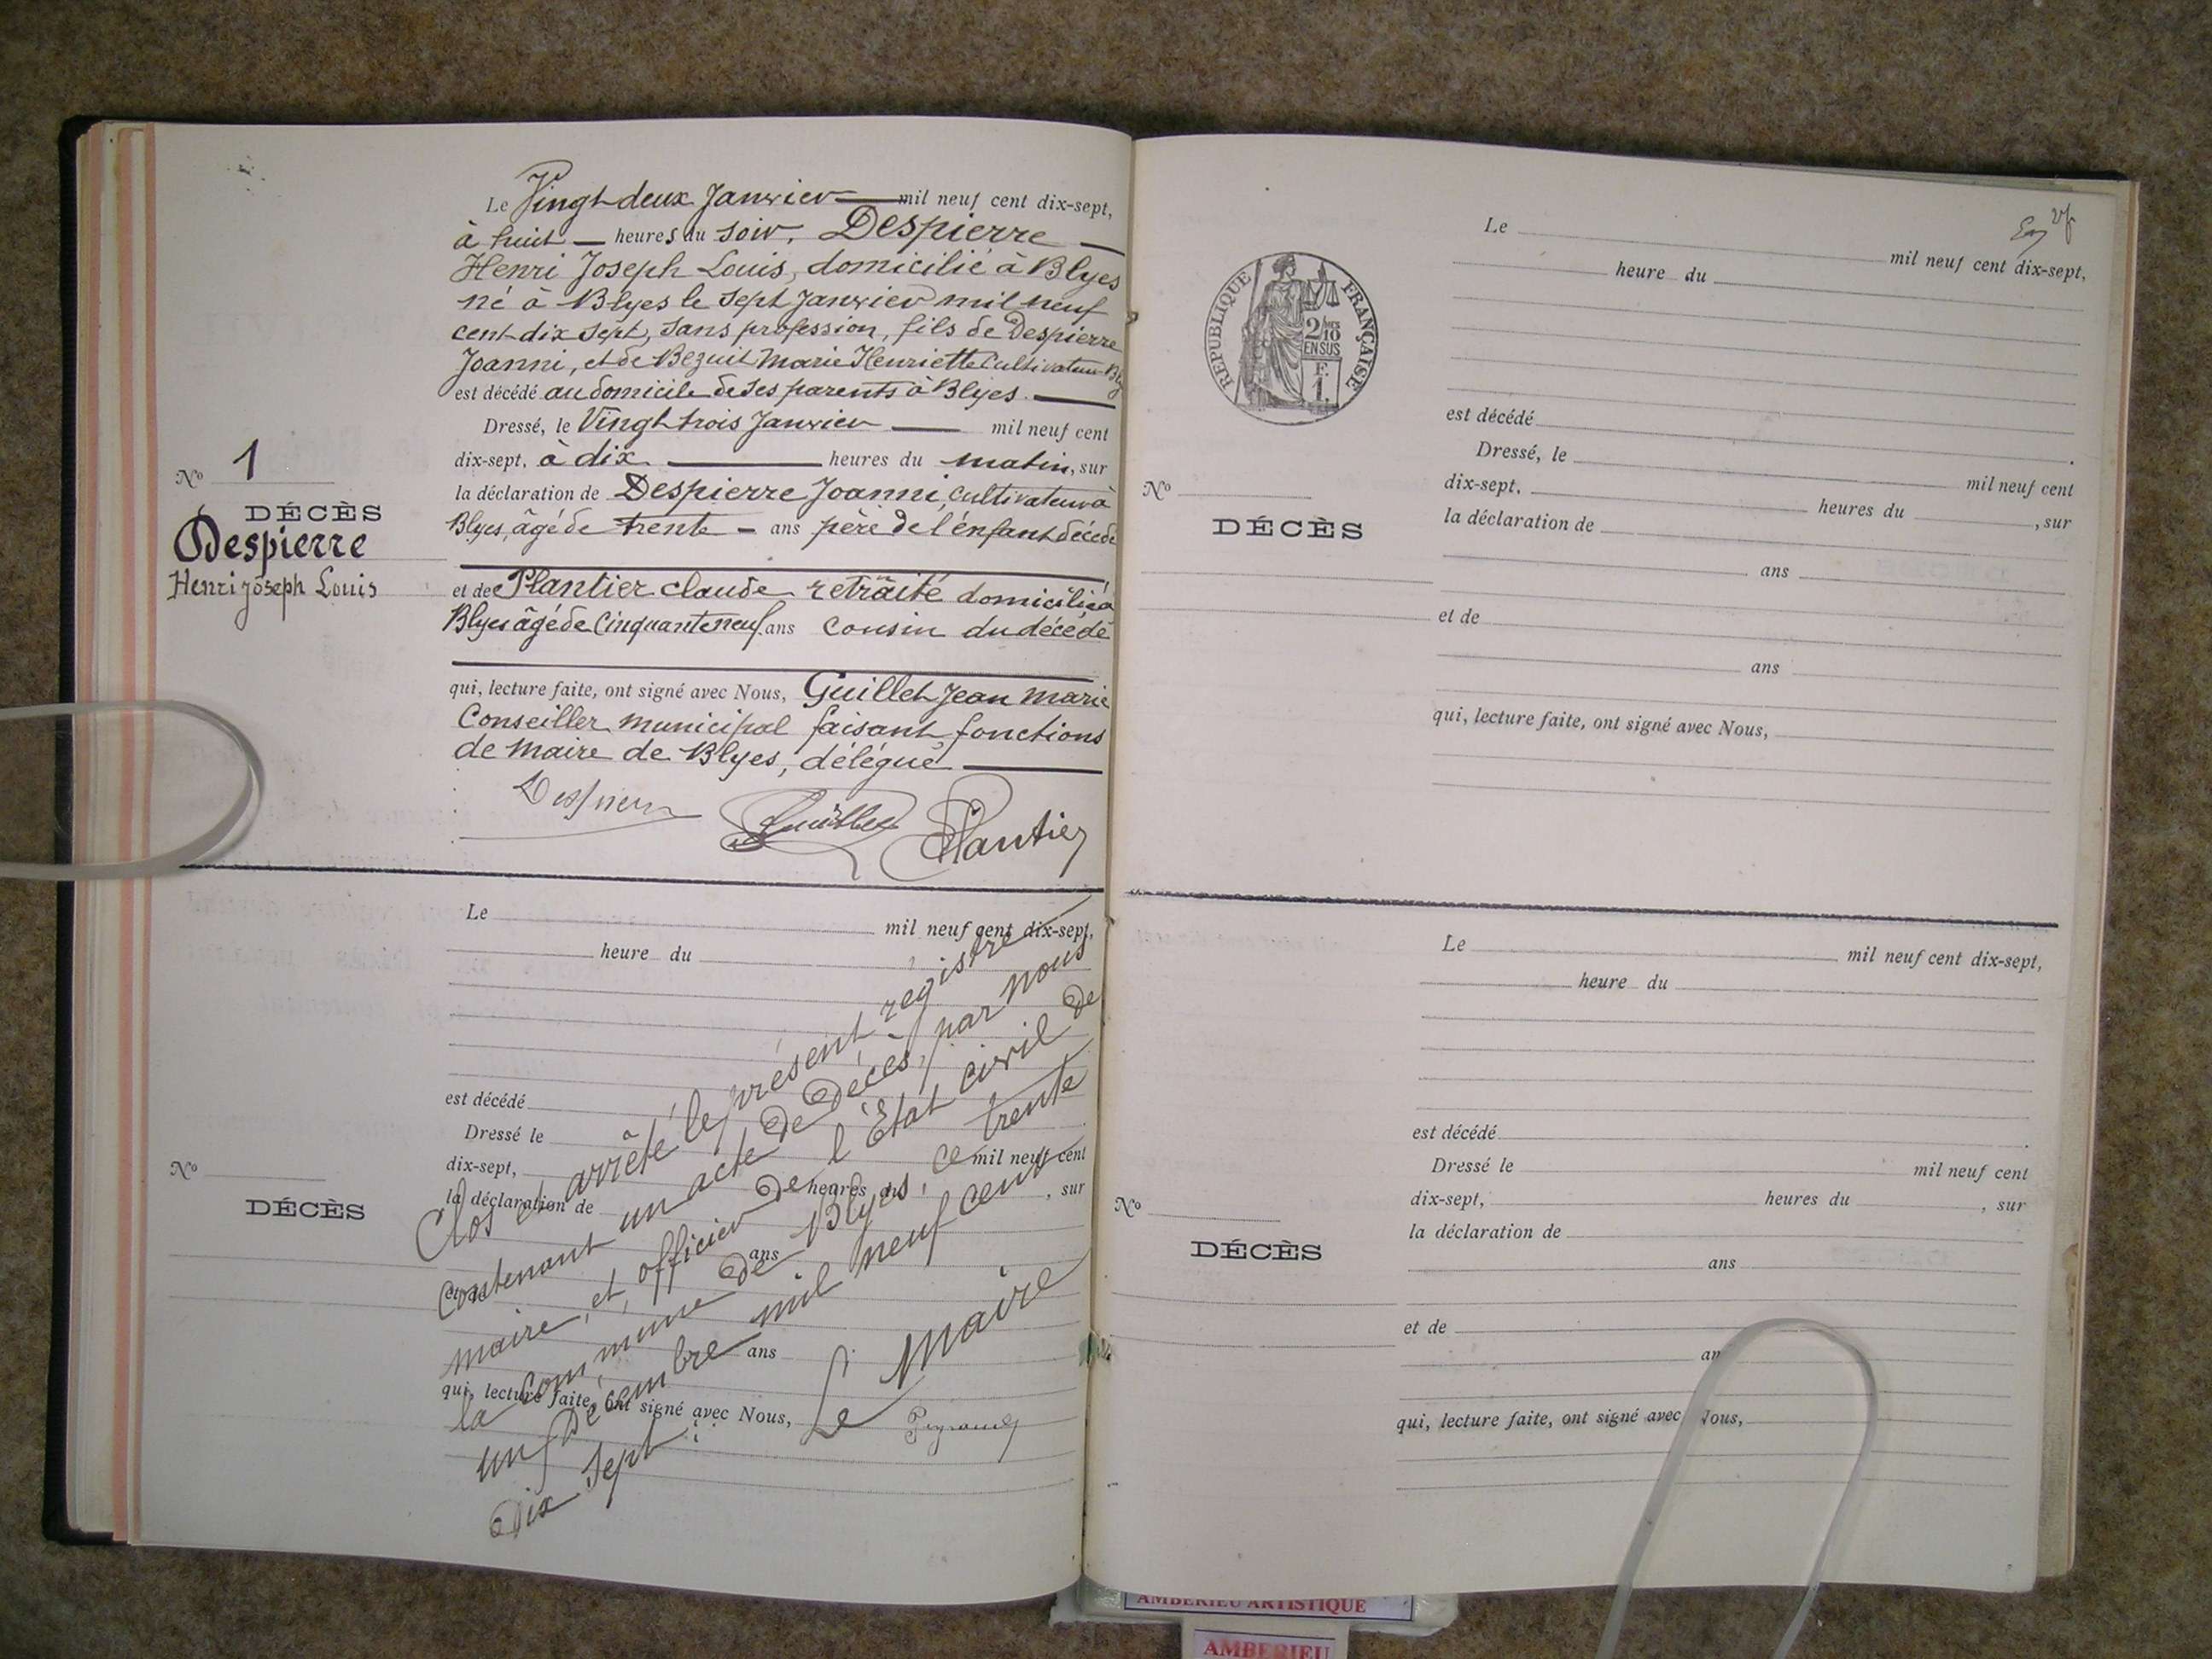 Le Vingt deux Janvier mil neuf cent dix-sept,
à huit heures du soir, Despierre
Henri Joseph Louis, domicilié à Blyes
né à Blyes le sept Janvier mil neuf
cent dix sept, sans profession, fils de Despierre
Joanni, et de Bezuit Marie Henriette Cultivateur
est décédé au domicile de ses parents à Blyes.
Dressé, le Vingt trois Janvier mil neuf cent
dix-sept, à dix heures du matin, sur
la déclaration de Despierre Joanni, cultivateur à
Blyes, âgé de trente ans père de l'énfant décédé
et de Plantier Claude retraité domicilié à
Blyes âgé de Cinquante neuf ans Cousin du décédé
qui, lecture faite, ont signé avec Nous, Guillet Jean Marie
Conseiller municipal faisant fonctions
de Maire de Blyes, délégué
Despierre
Guillet
Plantier
No 1
DÉCÈS
Despierre
Henri Joseph Louis
Le mil neuf cent dix-sept,
heure du
est décédé
Dressé le
dix-sept, mil neuf cent
la déclaration de heures du , sur
ans
ans
qui, lecture faite, ont signé avec Nous,
No
DÉCÈS
Clos et arrêté le présent régistre
contenant un acte de Décès, par nous
maire, et, officier de l'État civil de
la Commune de Blyes, ce trente
un Décembre mil neuf cent
Dix Sept :
Le Maire
RÉPUBLIQUE FRANÇAISE
2/10
EN SUS
F.
1.
Le mil neuf cent dix-sept,
heure du
est décédé
Dressé, le
dix-sept, mil neuf cent
la déclaration de heures du , sur
ans
et de
ans
qui, lecture faite, ont signé avec Nous,
No
DÉCÈS
Le mil neuf cent dix-sept,
heure du
est décédé
Dressé le mil neuf cent
dix-sept, heures du , sur
la déclaration de
ans
et de
an
qui, lecture faite, ont signé avec Nous,
No
DÉCÈS
AMBERIEU ARTISTIQUE
AMBERIEU